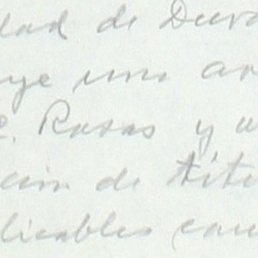 dad de Dura
ye una ar
. Rosas y u
cion de titu
licables con